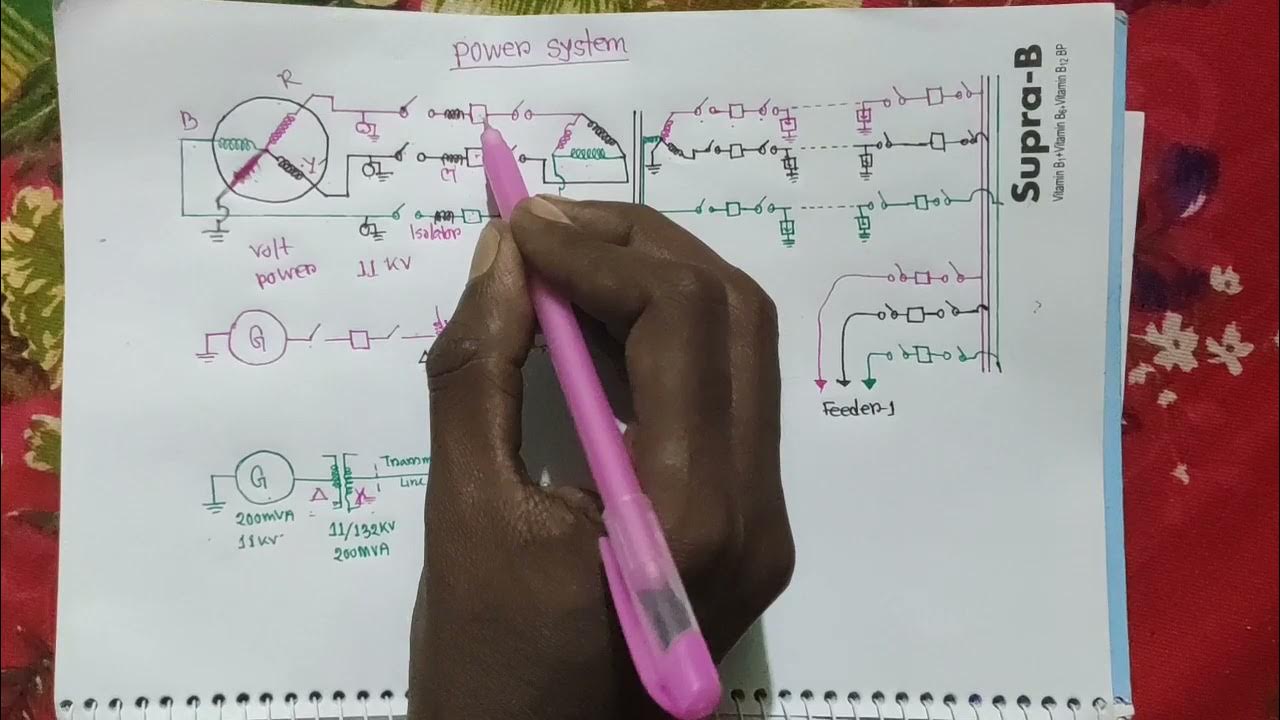 Power system
R
B
Y
CT
Isolator
volt
power
11 KV
G
Feeder-1
G
200MVA
11KV
Δ
11/132KV
200MVA
Transm
Line
Supra-B
Vitamin B1+Vitamin B6+Vitamin B12 BP